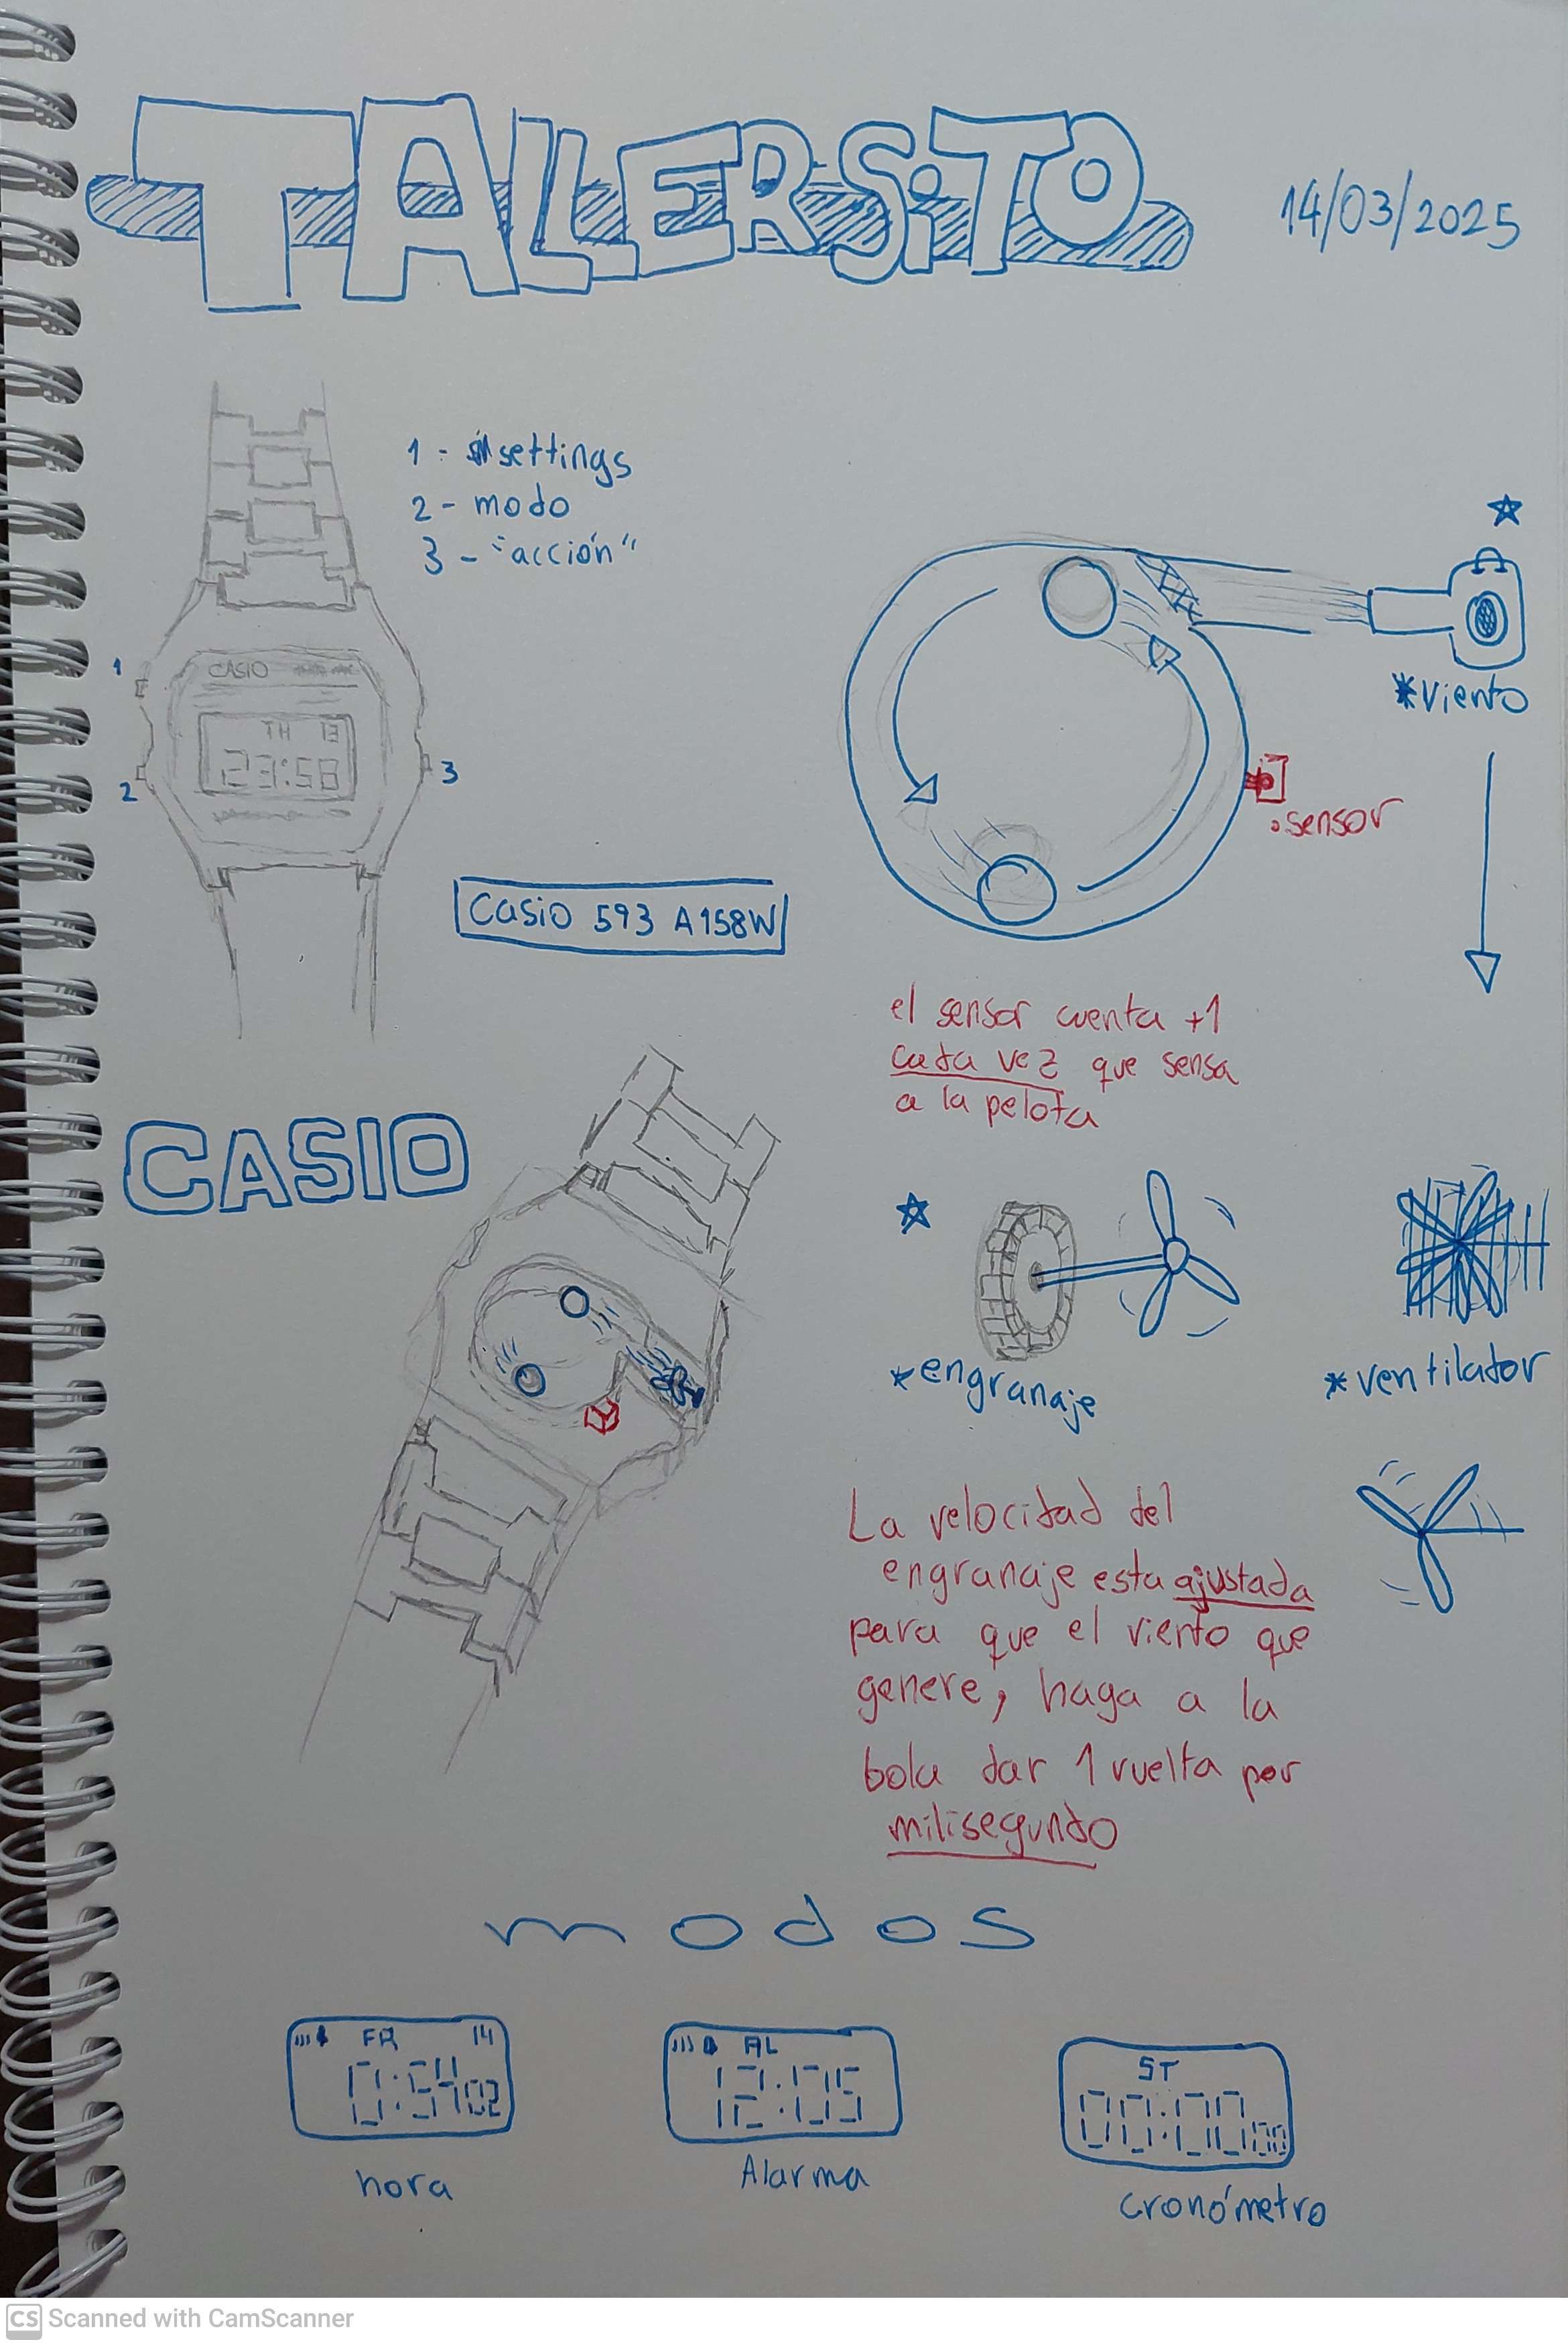 TALLERSiTO
14/03/2025
1 - settings
2 - modo
3 - "acción"
1
2
3
CASIO
TH 13
23:58
Casio 593 A158W
*viento
•sensor
el sensor cuenta +1
cada vez que sensa
a la pelota
CASIO
*engranaje
*ventilador
La velocidad del
engranaje esta ajustada
para que el viento que
genere, haga a la
bola dar 1 vuelta por
milisegundo
modos
FR 14
0:54 02
hora
AL
12:05
Alarma
ST
00:00 00
cronómetro
CS Scanned with CamScanner